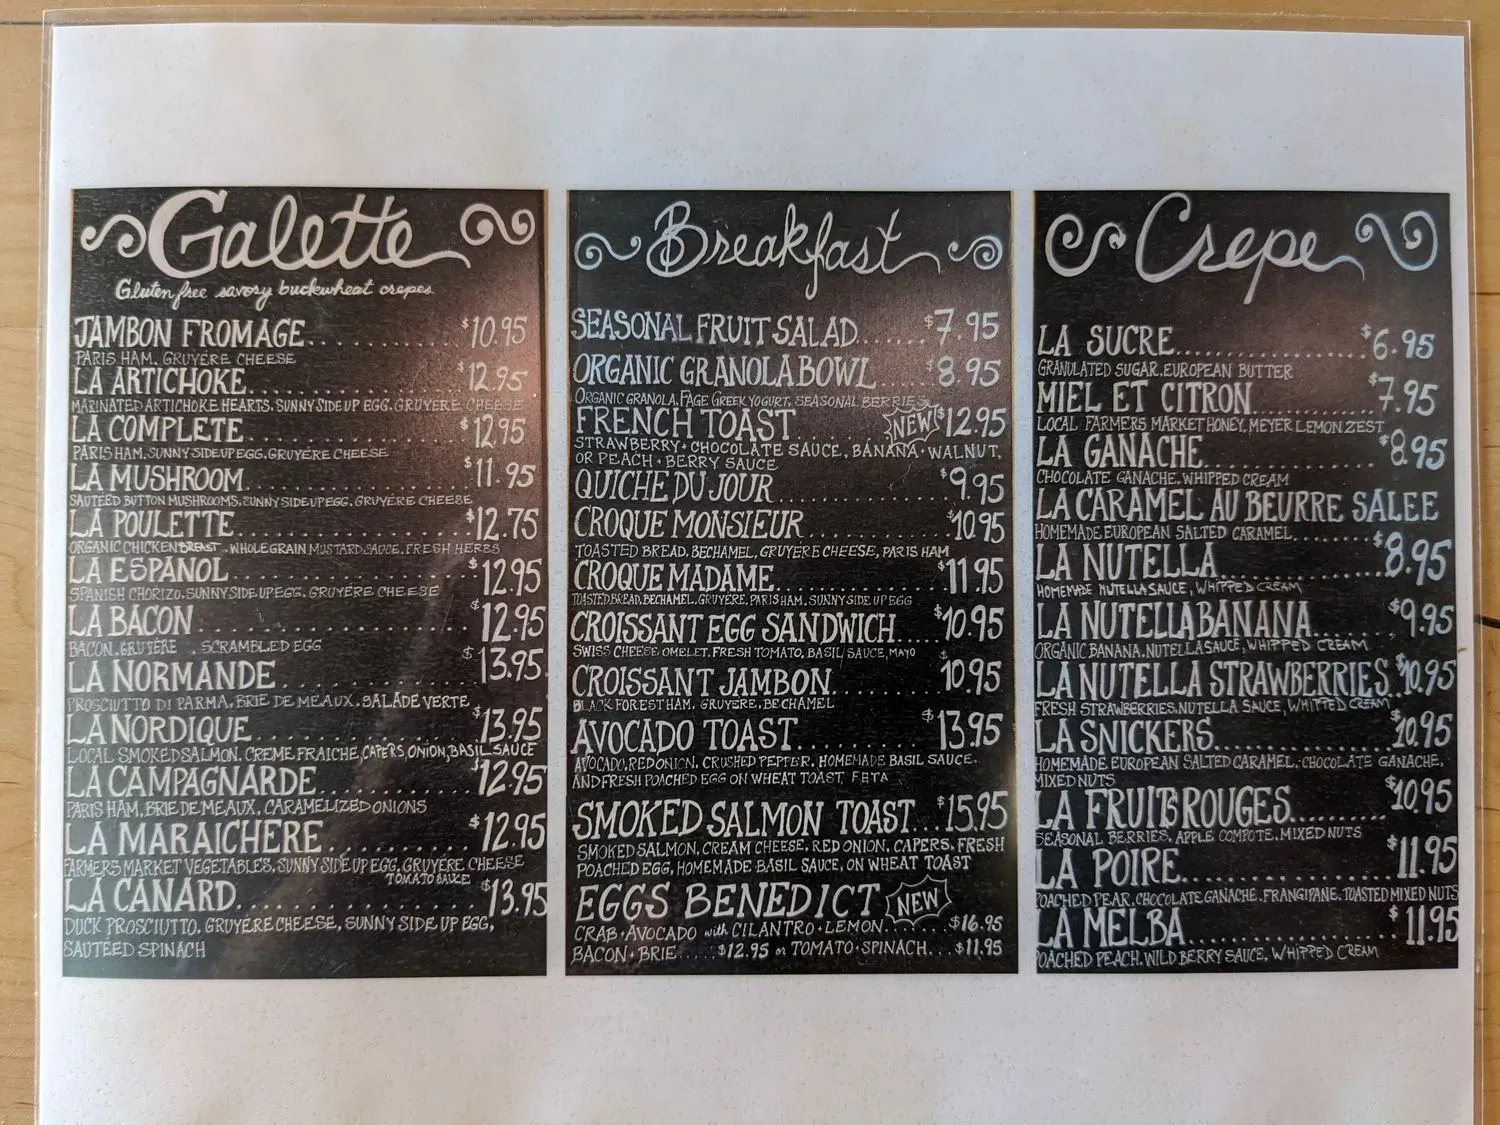 Galette
Gluten free savory buckwheat crepes
JAMBON FROMAGE..........$10.95
PARIS HAM, GRUYÉRE CHEESE
LA ARTICHOKE..........$12.95
MARINATED ARTICHOKE HEARTS, SUNNY SIDE UP EGG, GRUYÉRE CHEESE
LA COMPLETE..........$12.95
PARIS HAM, SUNNY SIDE UP EGG, GRUYÉRE CHEESE
LA MUSHROOM..........$11.95
SAUTÉED BUTTON MUSHROOMS, SUNNY SIDE UP EGG, GRUYÉRE CHEESE
LA POULETTE..........$12.75
ORGANIC CHICKEN BREAST, WHOLE GRAIN MUSTARD SAUCE, FRESH HERBS
LA ESPAÑOL..........$12.95
SPANISH CHORIZO, SUNNY SIDE UP EGG, GRUYÉRE CHEESE
LA BACON..........$12.95
BACON, GRUYÉRE , SCRAMBLED EGG
LA NORMANDE..........$13.95
PROSCIUTTO DI PARMA, BRIE DE MEAUX, SALADE VERTE
LA NORDIQUE..........$13.95
LOCAL SMOKED SALMON, CREME FRAICHE, CAPERS, ONION, BASIL SAUCE
LA CAMPAGNARDE..........$12.95
PARIS HAM, BRIE DE MEAUX, CARAMELIZED ONIONS
LA MARAICHERE..........$12.95
FARMERS MARKET VEGETABLES, SUNNY SIDE UP EGG, GRUYÉRE CHEESE
TOMATO SAUCE
LA CANARD..........$13.95
DUCK PROSCIUTTO, GRUYÉRE CHEESE, SUNNY SIDE UP EGG,
SAUTÉED SPINACH
Breakfast
SEASONAL FRUIT SALAD.......$7.95
ORGANIC GRANOLA BOWL......$8.95
ORGANIC GRANOLA, FAGE GREEK YOGURT, SEASONAL BERRIES
FRENCH TOAST..........NEW $12.95
STRAWBERRY + CHOCOLATE SAUCE, BANANA + WALNUT,
OR PEACH + BERRY SAUCE
QUICHE DU JOUR..........$9.95
CROQUE MONSIEUR..........$10.95
TOASTED BREAD, BECHAMEL, GRUYÉRE CHEESE, PARIS HAM
CROQUE MADAME..........$11.95
TOASTED BREAD, BECHAMEL, GRUYÉRE, PARIS HAM, SUNNY SIDE UP EGG
CROISSANT EGG SANDWICH.....$10.95
SWISS CHEESE OMELET, FRESH TOMATO, BASIL SAUCE, MAYO
CROISSANT JAMBON..........$10.95
BLACK FOREST HAM, GRUYERE, BECHAMEL
AVOCADO TOAST..........$13.95
AVOCADO, RED ONION, CRUSHED PEPPER, HOMEMADE BASIL SAUCE,
AND FRESH POACHED EGG ON WHEAT TOAST, FETA
SMOKED SALMON TOAST...$15.95
SMOKED SALMON, CREAM CHEESE, RED ONION, CAPERS, FRESH
POACHED EGG, HOMEMADE BASIL SAUCE, ON WHEAT TOAST
EGGS BENEDICT NEW
CRAB + AVOCADO with CILANTRO + LEMON.......$16.95
BACON + BRIE.....$12.95 or TOMATO + SPINACH...$11.95
Crepe
LA SUCRE..........$6.95
GRANULATED SUGAR, EUROPEAN BUTTER
MIEL ET CITRON..........$7.95
LOCAL FARMERS MARKET HONEY, MEYER LEMON ZEST
LA GANACHE..........$8.95
CHOCOLATE GANACHE, WHIPPED CREAM
LA CARAMEL AU BEURRE SALEE
HOMEMADE EUROPEAN SALTED CARAMEL..........$8.95
LA NUTELLA..........
HOMEMADE NUTELLA SAUCE, WHIPPED CREAM
LA NUTELLA BANANA..........$9.95
ORGANIC BANANA, NUTELLA SAUCE, WHIPPED CREAM
LA NUTELLA STRAWBERRIES..$10.95
FRESH STRAWBERRIES, NUTELLA SAUCE, WHIPPED CREAM
LA SNICKERS..........$10.95
HOMEMADE EUROPEAN SALTED CARAMEL, CHOCOLATE GANACHE,
MIXED NUTS
LA FRUITS ROUGES..........$10.95
SEASONAL BERRIES, APPLE COMPOTE, MIXED NUTS
LA POIRE..........$11.95
POACHED PEAR, CHOCOLATE GANACHE, FRANGIPANE, TOASTED MIXED NUTS
LA MELBA..........$11.95
POACHED PEACH, WILD BERRY SAUCE, WHIPPED CREAM